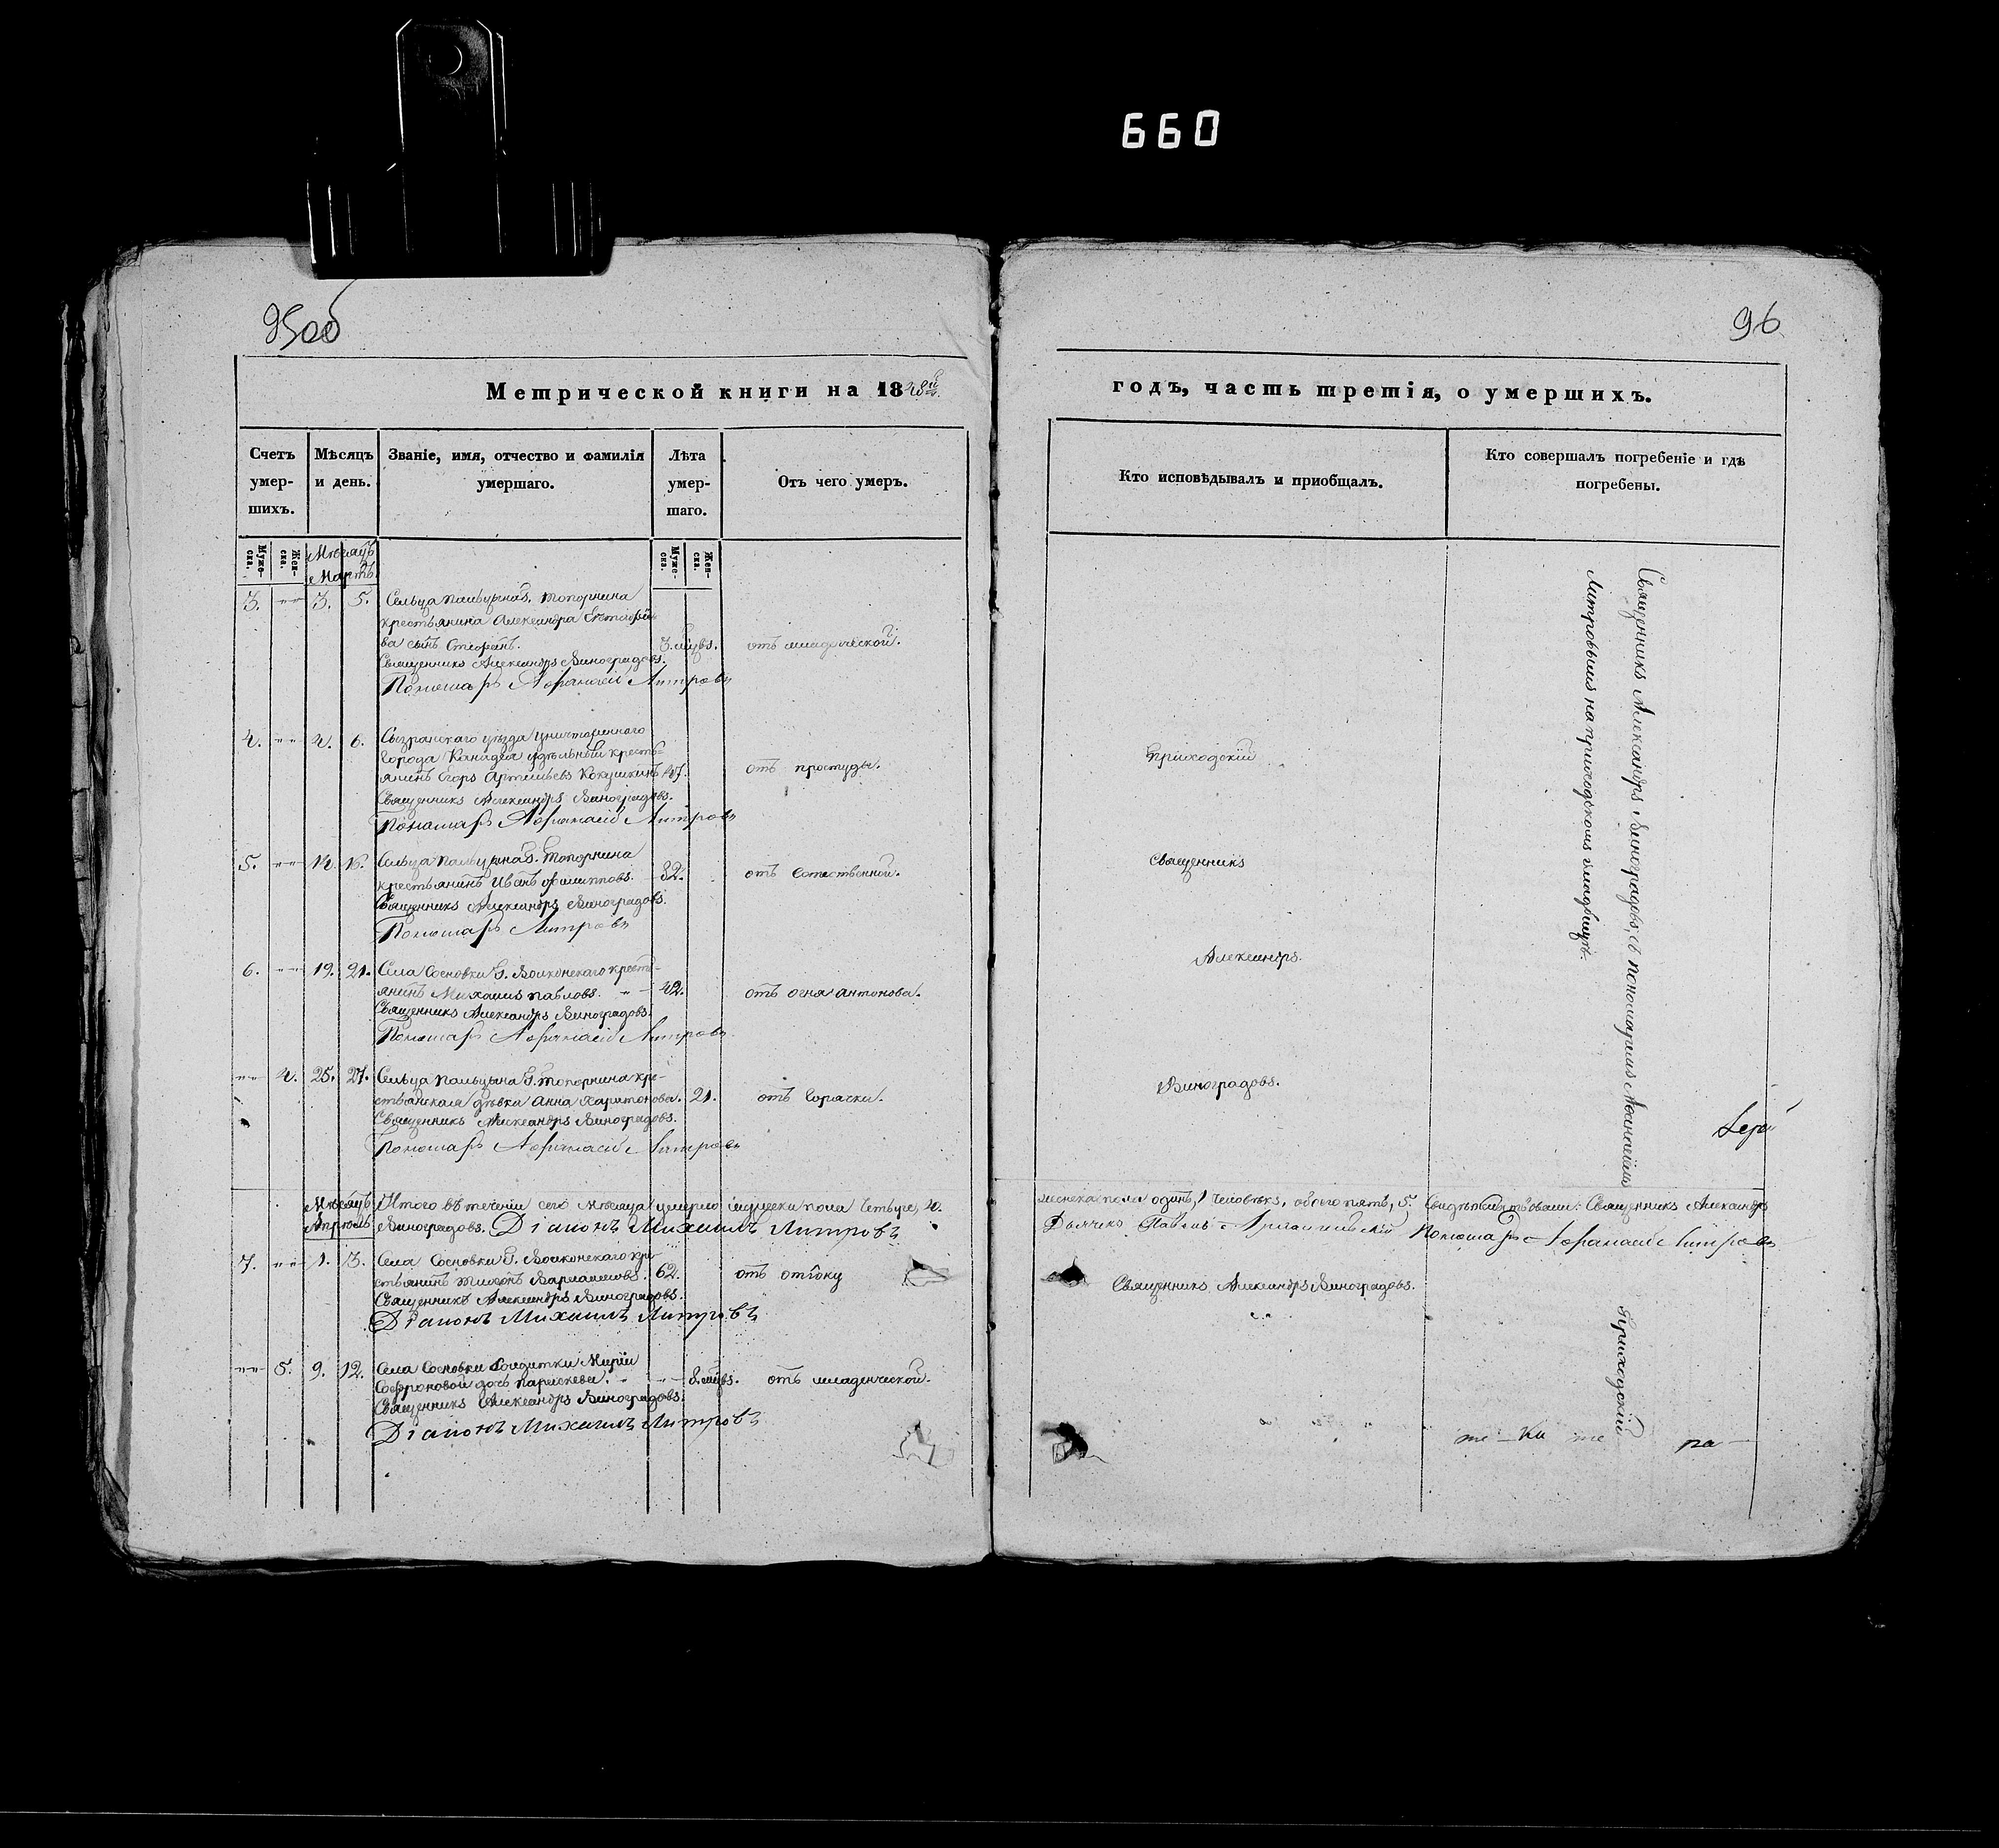 660
95об
96
Метрической книги на 1848й
годъ, часть третія, о умершихъ.
Счетъ умер-шихъ.
Мѣсяцъ и день.
Званіе, имя, отчество и фамилія умершаго.
Лѣта умер-шаго.
Отъ чего умеръ.
Кто исповѣдывалъ и приобщалъ.
Кто совершалъ погребеніе и гдѣ погребены.
Муже-ска.
Жен-ска.
Мѣсяцъ
Мартъ.
Муже-ска.
Жен-ска.
3. 3. 5. Сельца Пальцына Г. Топорнина
крестьянина Александра
ва сынъ Стефанъ. 3. мцвъ. отъ младенческой.
Священникъ Александръ Виноградовъ.
Пономарь Афанасій Митровъ
4. 4. 6. Сызранскаго уѣзда уничтоженнаго
города Канадея удѣльный кресть-
янинъ Егоръ Артемьевъ Кокушкинъ 47. отъ простуды.
Священникъ Александръ Виноградовъ.
Пономарь Афанасій Митровъ
5. 14. 16. Сельца Пальцына Г. Топорнина
крестьянинъ Иванъ Филипповъ. 82. отъ естественной.
Священникъ Александръ Виноградовъ.
Пономарь Митровъ
6. 19. 21. Села Сосновки Г. Волконскаго кресть-
янинъ Михаилъ Павловъ. 42. отъ огня антонова.
Священникъ Александръ Виноградовъ.
Пономарь Афанасій Митровъ
4. 25. 27. Сельца Пальцына Г. Топорнина кре-
стьянская дѣвка Анна Харитонова. 21. отъ горячки.
Священникъ Александръ Виноградовъ.
Пономарь Афанасій Митровъ
Приходскій
Священникъ
Александръ.
Виноградовъ.
Священникъ Александръ Виноградовъ, съ пономаремъ Афанасіемъ
Митровымъ на приходскомъ кладбищѣ.
Мѣсяцъ
Апрѣль
Итого въ теченіи сего мѣсяца умерло мужеска пола четыре, 4.
женска пола одинъ, 1 человѣкъ, обоего пять, 5. Свидѣтельствовали: Священникъ Александръ
Виноградовъ. Діаконъ Михаилъ Митровъ
Дьячекъ Павелъ Архангельскій Пономарь Афанасій Митровъ
7. 1. 3. Села Сосновки Г. Волконскаго кре-
стьянинъ Тимофей Варламовъ. 62. отъ отоку
Священникъ Александръ Виноградовъ.
Діаконъ Михаилъ Митровъ
Священникъ Александръ Виноградовъ.
5. 9. 12. Села Сосновки солдатки Маріи
Софроновой дочь Параскева. 8. мцвъ. отъ младенческой.
Священникъ Александръ Виноградовъ.
Діаконъ Михаилъ Митровъ
Приходскій
ра